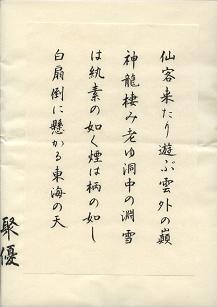 仙客来たり遊ぶ雲外の巓
神龍棲み老ゆ洞中の淵雪
は紈素の如く煙は柄の如し
白扇倒に懸かる東海の天
聚優